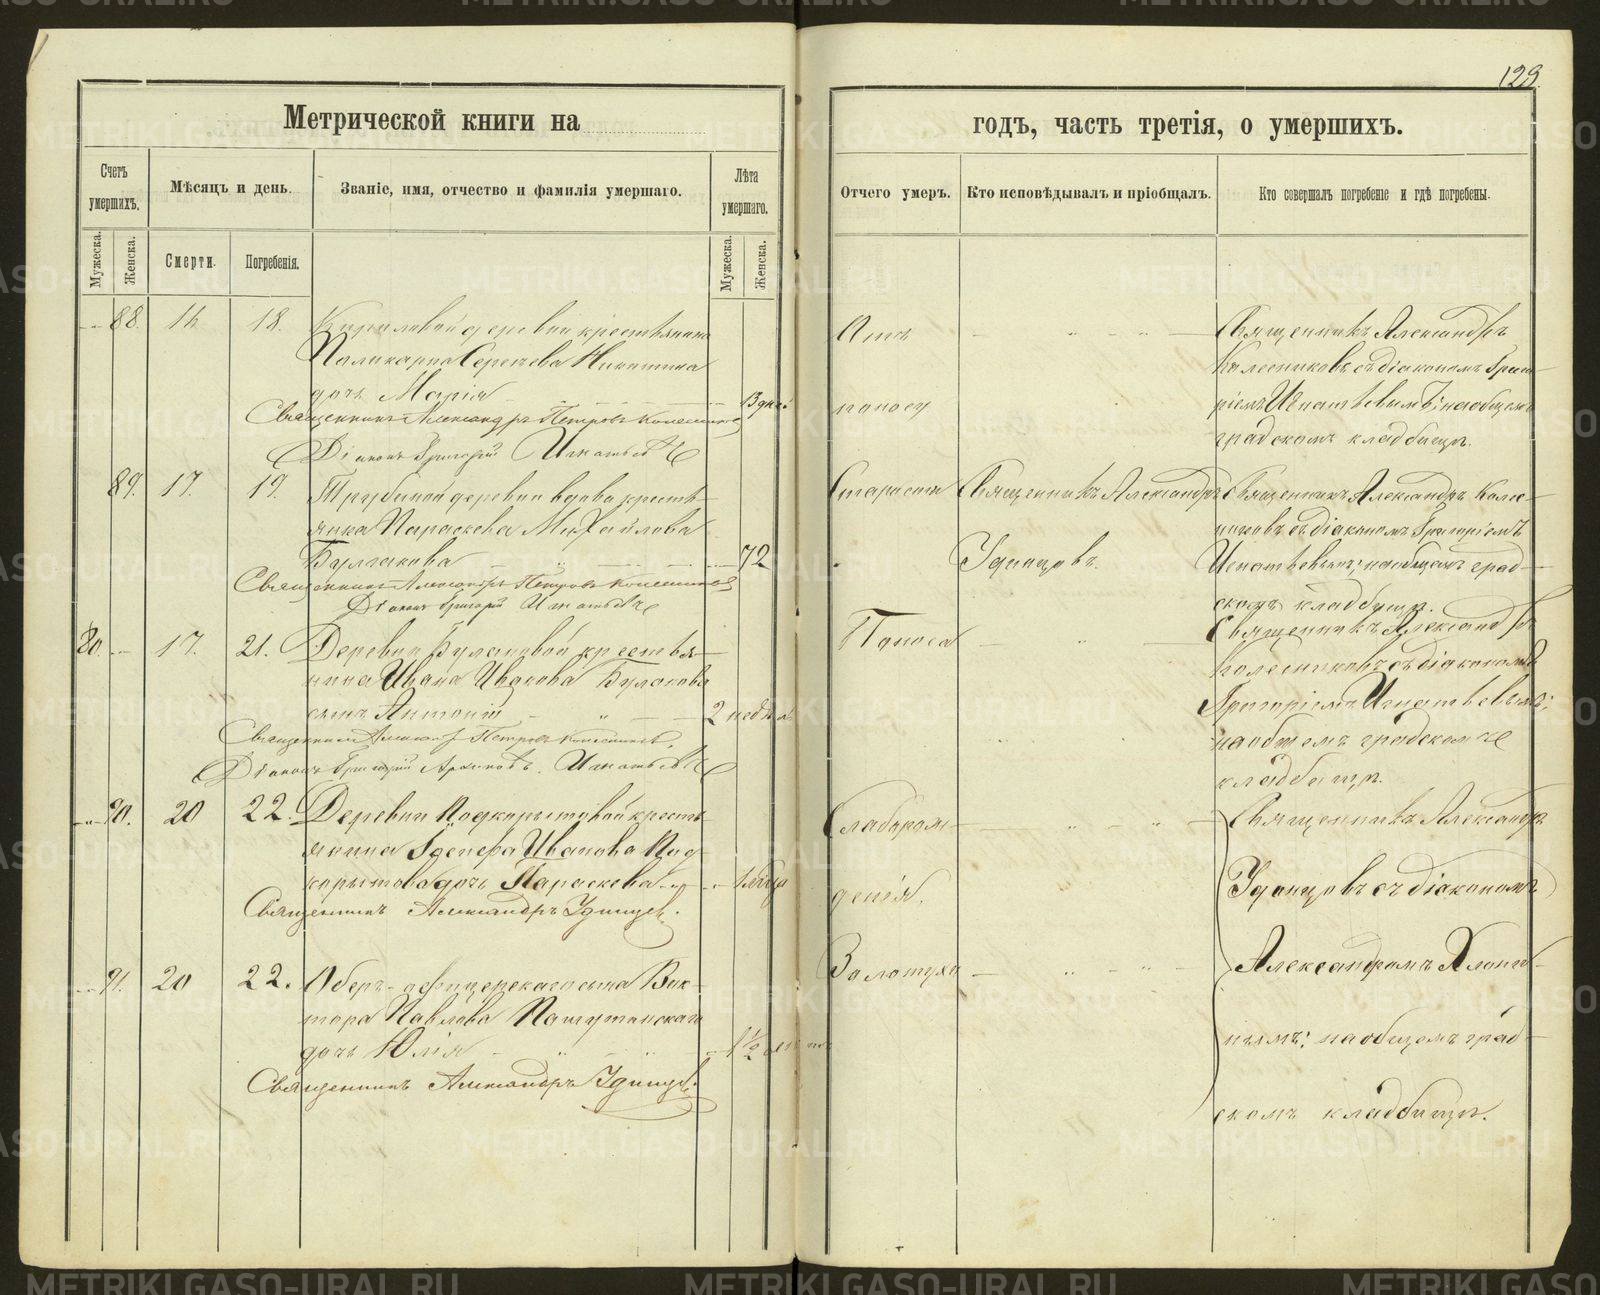 129.
Метрической книги на
годъ, часть третія, о умершихъ.
Счетъ умершихъ.
Мѣсяцъ и день.
Званіе, имя, отчество и фамилія умершаго.
Лѣта умершаго.
Отчего умеръ.
Кто исповѣдывалъ и пріобщалъ.
Кто совершалъ погребеніе и гдѣ погребены.
Мужеска.
Женска.
Смерти.
Погребенія.
Мужеска.
Женска.
88. 16 18. деревни крестьянина
Поликарпа Сергѣева Никитина
дочь Марія 3 дней
Священникъ Александръ Петровъ Колесниковъ
Діаконъ Григорій Игнатьевъ
Отъ поносу
Священникъ Александръ
Колесниковъ съ діакономъ Григо-
ріемъ Игнатьевымъ; на общемъ
градскомъ кладбищѣ.
89. 17. 19. Трубиной деревни вдова кресть-
янка Параскева Михайлова
Булгакова 72
Священникъ Александръ Петровъ Колесниковъ
Діаконъ Григорій Игнатьевъ
Старости
Священникъ Александръ
Удинцовъ.
Священникъ Александръ Колес-
никовъ съ діакономъ Григоріемъ
Игнатьевымъ; на общемъ град-
скомъ кладбищѣ.
80. 17. 21. Деревни Булановой крестья-
нина Ивана Иванова Буланова
сынъ Антоній 2 недѣль
Священникъ Александръ Петровъ Колесниковъ.
Діаконъ Григорій Игнатьевъ
Поноса
Священникъ Александръ
Колесниковъ съ діакономъ
Григоріемъ Игнатьевымъ;
на общемъ градскомъ
кладбищѣ.
90. 20 22. Деревни Подкорытовой кресть-
янина Иванова Под-
корытова дочь Параскева 1 мѣсяца
Священникъ Александръ Удинцевъ.
Слаборож-
денія.
Священникъ Александръ
Удинцовъ съ діакономъ
Александромъ Хлопи-
нымъ; на общемъ град-
скомъ кладбищѣ.
91. 20 22. Оберъ-офицерскаго сына Вик-
тора Павлова
дочь Юлія 1 ½
Священникъ Александръ Удинцевъ.
Золотухи
METRIKI.GASO-URAL.RU